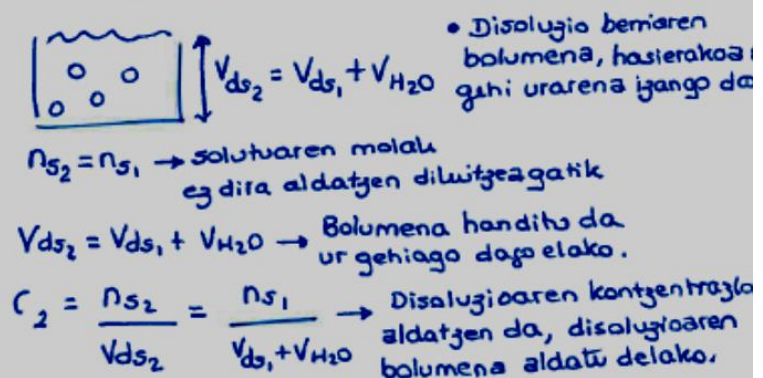 • Disoluzio berriaren
bolumena, hasierakoa
Vds₂ = Vds₁ + VH₂O gehi urarena izango da
ns₂ = ns₁ → solutuaren molak
ez dira aldatzen diluitzeagatik
Vds₂ = Vds₁ + VH₂O → Bolumena handitu da
ur gehiago dagoelako.
C₂ = ns₂/Vds₂ = ns₁/(Vds₁ + VH₂O) → Disoluzioaren kontzentrazio
aldatzen da, disoluzioaren
bolumena aldatu delako.